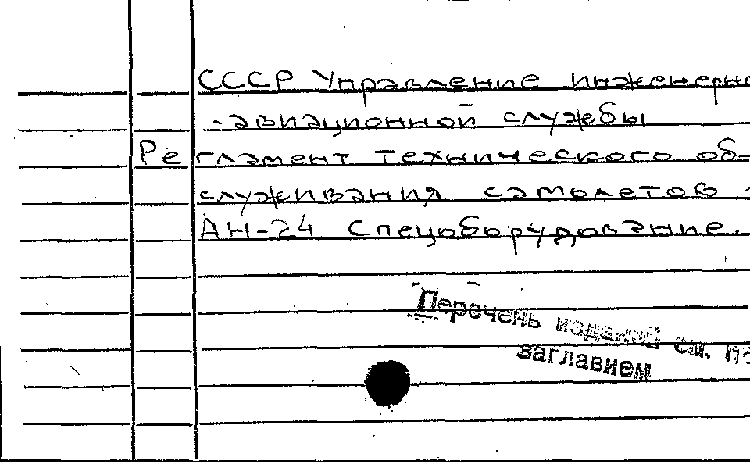 СССР Управление инженерно
-авиационной службы
Регламент технического об-
служивания самолетов
АН-24 Спецоборудование.
Перечень изданий см. под
заглавием